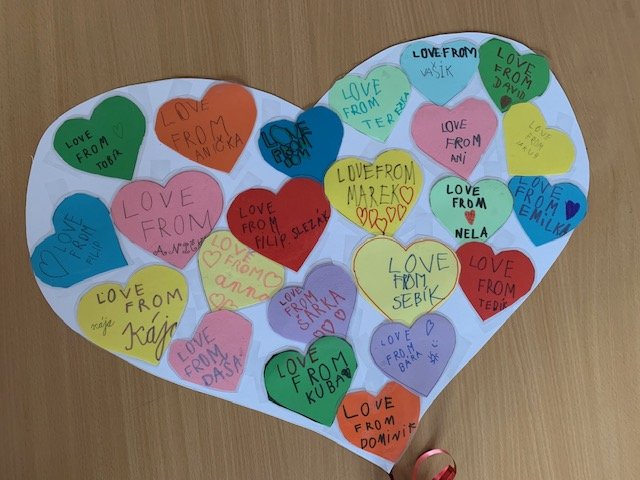 LOVE
FROM
TOBÍK
LOVE
FROM
ANIČKA
LOVE
FROM
LOVE
FROM
TEREZKA
LOVE FROM
VAŠÍK
LOVE
FROM
DAVID
LOVE
FROM
FILIP
LOVE
FROM
LOVE
FROM
FILIP. SLEZÁK
LOVE FROM
MAREK
LOVE
FROM
ANI
LOVE
FROM
LOVE
FROM
NELA
LOVE
FROM
EMILKA
LOVE
FROM
Kája
kája
LOVE
FROM
anna
LOVE
FROM
ŠÁRKA
LOVE
FROM
SEBÍK
LOVE
FROM
LOVE
FROM
DAŠA
LOVE
FROM
KUBA
LOVE
FROM
BÁRA
LOVE
FROM
DOMINIK